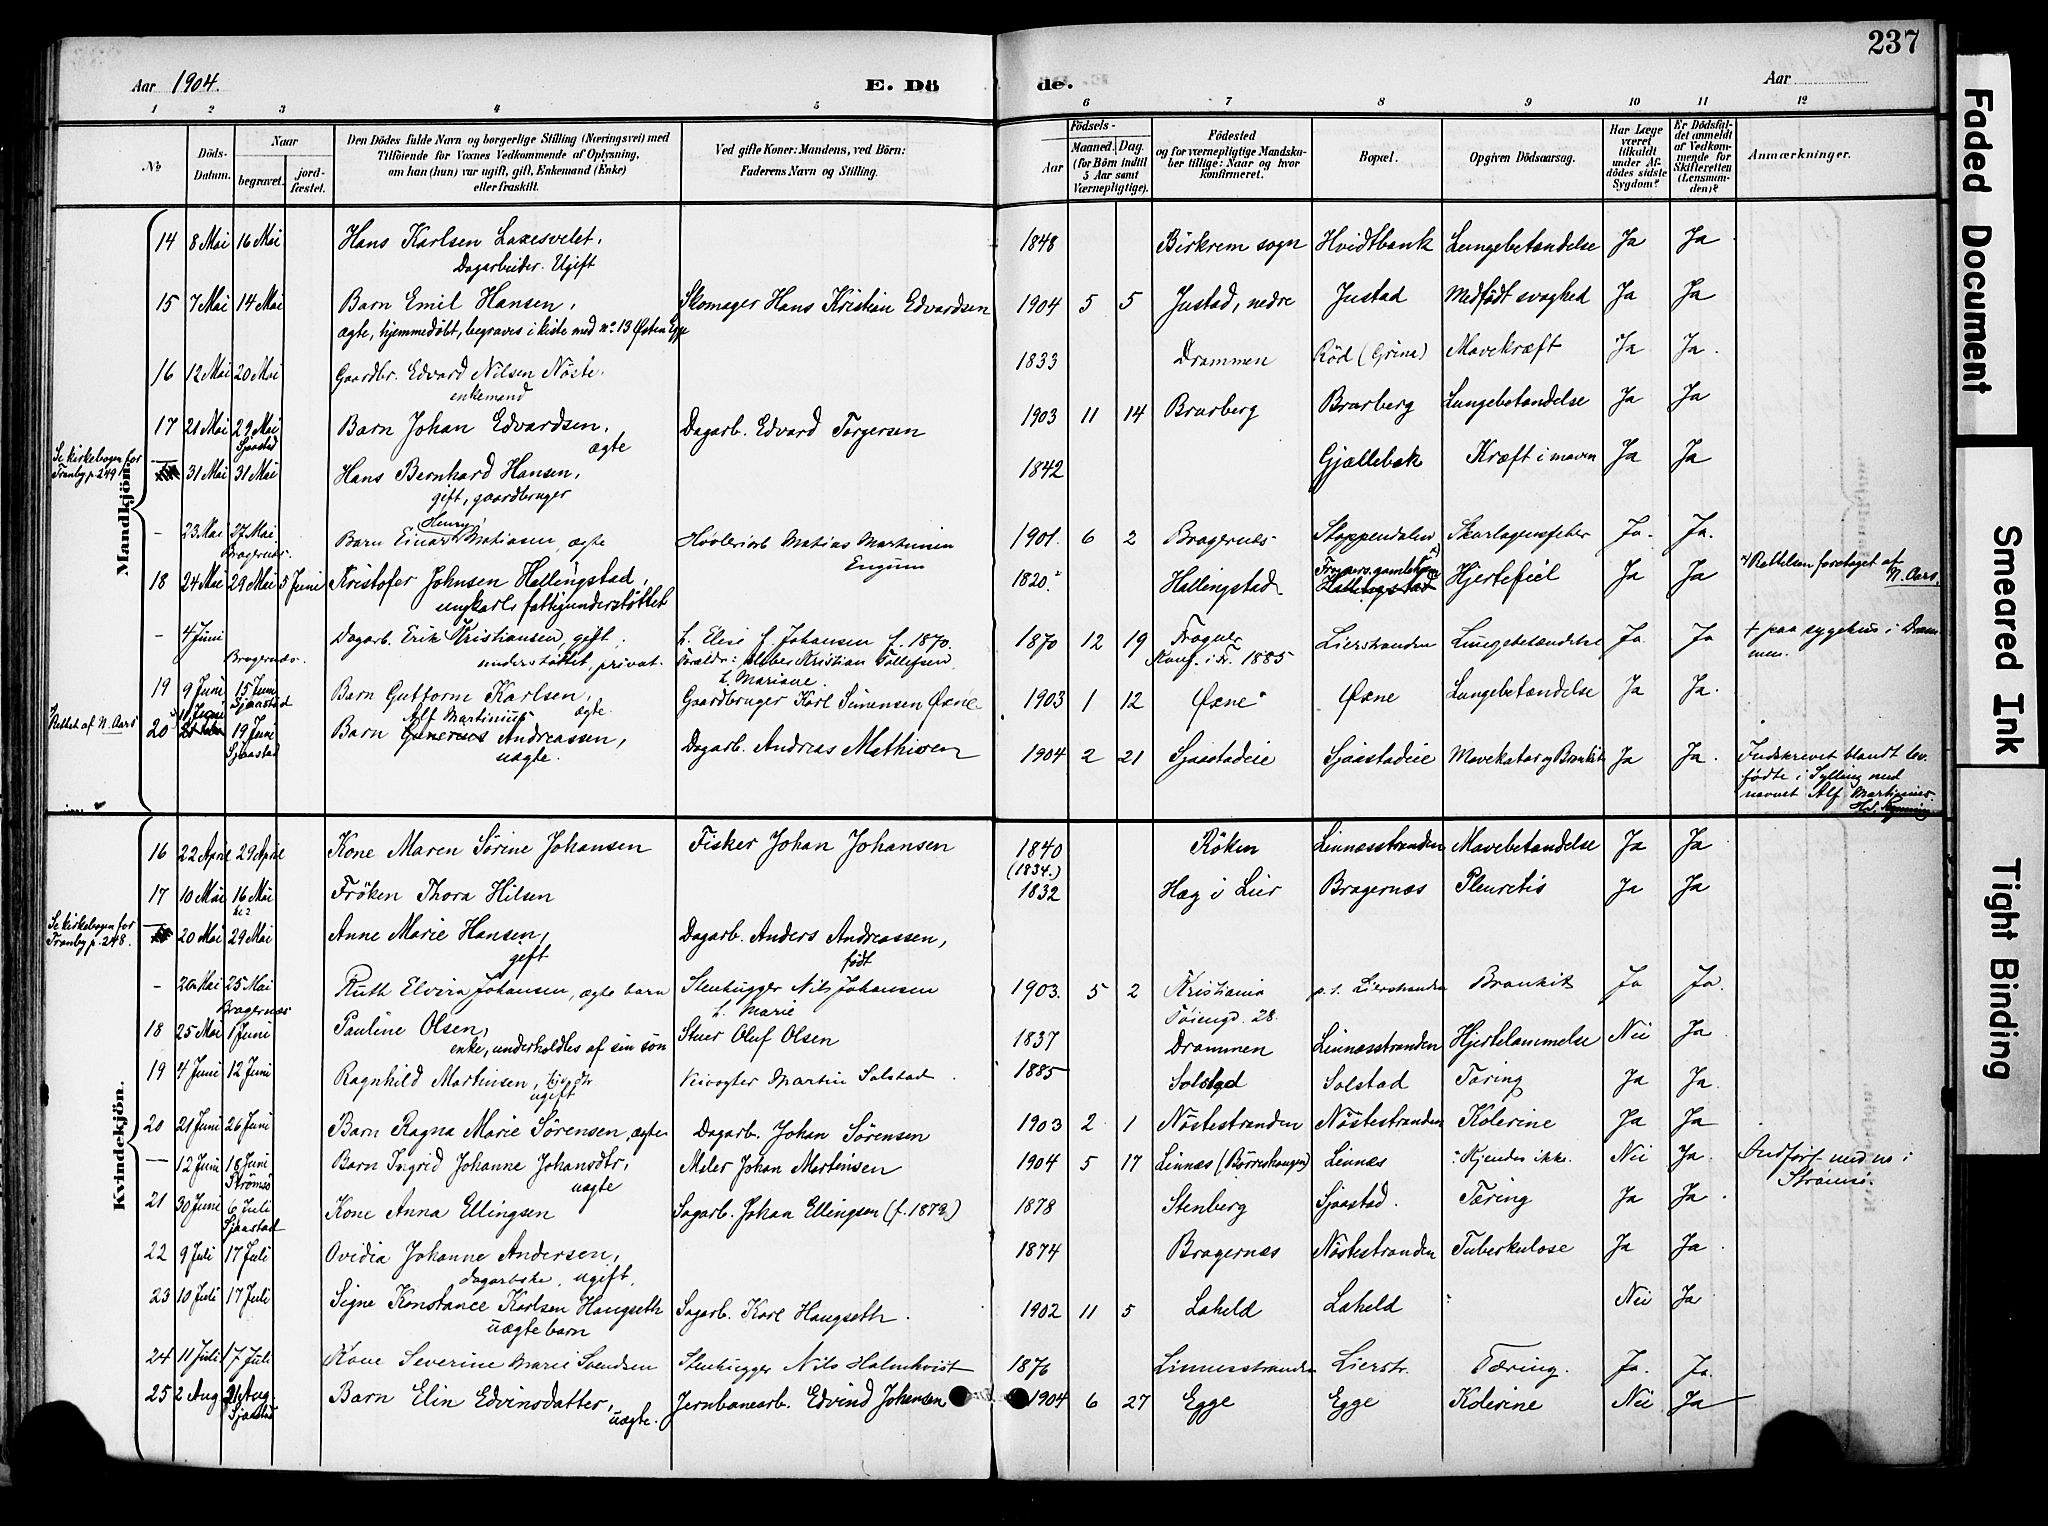 237
Aar 1904. E. Dö de. Aar
1 2 3 4 5 6 7 8 9 10 11 12
No
Döds-Datum.
Naar
begravet.
jord-fæstet.
Den Dödes fulde Navn og borgerlige Stilling (Næringsvei) med
Tilföiende for Voxnes Vedkommende af Oplysning,
om han (hun) var ugift, gift, Enkemand (Enke)
eller fraskilt.
Ved gifte Koner: Mandens, ved Börn:
Faderens Navn og Stilling.
Aar
Födsels-
Maaned. Dag.
(for Börn indtil
5 Aar samt
Værnepligtige).
Födested
og for værnepligtige Mandska-
ber tillige: Naar og hvor
konfirmeret.
Bopæl.
Opgiven Dödsaarsag.
Har Læge
været
tilkaldt
under Af-
dödes sidste
Sygdom?
Er Dödsfal-
det anmeldt
af Vedkom-
mende for
Skifteretten
(Lensman-
den)?
Anmærkninger.
Mandkjön.
14 8 Mai 16 Mai Hans Karlsen Laxesvelet, 1848 Birkrem sogn Hvidtbank Lungebetændelse Ja Ja
Dagarbeider. Ugift
15 7 Mai 14 Mai Barn Emil Hansen, Skomager Hans Kristian Edvardsen 1904 5 5 Justad, nedre Justad Medfödt svaghed Ja Ja
ægte, hjemmedöbt, begraves i kiste med no 13 Østen Egge
16 12 Mai 20 Mai Gaardbr. Edvard Nilsen Nöste. 1833 Drammen Röd (Grina) Mavekræft Ja Ja.
enkemand
17 21 Mai 29 Mai Barn Johan Edvardsen, Dagarb. Edvard Torgersen 1903 11 14 Brarberg Brarberg Lungebetændelse Ja Ja
Sjaastad ægte
Se kirkebogen for
Tranby p. 249.
31 Mai 31 Mai Hans Bernhard Hansen, 1842 Gjællebæk Kræft i maven Ja Ja
gift, gaardbruger
Henry
– 23 Mai 27 Mai Barn Einar Matiasen, ægte Matias Martinsen 1901 6 2 Bragernes Stoppendalen Skarlagensfeber Ja. Ja.
Bragernes. Engum
18 24 Mai 29 Mai 5 Juni Kristofer Johnsen Hallingstad, 1820 Hallingstad Hallingstad Hjertefeil Ja Ja Rettelsen foretaget af
ungkarl, fattigunderstöttet N. Aars.
– 4 Juni Dagarb. Erik Kristiansen, gift. h. Elise f. Johansen f. 1870. 1870 12 19 Frogner Lierstranden Lungebetændelse Ja Ja + paa sygehus i Dram-
Bragernes. understöttet, privat. Kristian Tollefsen Konf. i Fr. 1885 men.
h. Mariane.
19 9 Juni 15 Juni Barn Guttorm Karlsen, Gaardbruger Karl Simensen Øxne 1903 1 12 Øxne Øxne Lungebetændelse Ja Ja.
Sjaastad ægte
Rettet af N. Aars 11 Juni Alf Martinius
20 19 Juni Barn Andreassen, Dagarb. Andreas Mathisen 1904 2 21 Sjaastadeie Sjaastadeie Mavekatar og Bronkit Ja Ja. Indskrevet blandt lev.
Sjaastad uægte. födte i Sylling med
navnet Alf Martinius.
Kvindekjön.
16 22 April 29 April Kone Maren Sörine Johansen Fisker Johan Johansen 1840 Röken Linnæsstranden Mavebetændelse Ja Ja
(1834.)
17 10 Mai 16 Mai Fröken Thora Hilsen 1832 Hæg i Lier Bragernæs Pleuretis Ja Ja
Se kirkebogen for
Tranby p. 248.
20 Mai 29 Mai Anne Marie Hansen, Dagarb. Anders Andreassen,
gift födt
– 20 Mai 25 Mai Ruth Elvira Johansen, ægte barn Stenhugger Nils Johansen 1903. 5 2 Kristiania p.t. Lierstranden Bronkit Ja Ja.
Bragernæs h. Marie Töiengd. 28.
18 25 Mai 1 Juni Pauline Olsen, Stuer Oluf Olsen 1837 Drammen Linnæsstranden Hjertelammelse Nei Ja
enke, underholdtes af sin sön
19 4 Juni 12 Juni Ragnhild Martinsen, Veivogter Martin Solstad 1885 Solstad Solstad Tæring Ja Ja.
ugift
20 21 Juni 26 Juni Barn Ragna Marie Sörensen, ægte Dagarb. Johan Sörensen 1903 2 1 Nöstestranden Nöstestranden Kolerine Ja Ja
— 12 Juni 18 Juni Barn Ingrid Johanne Johansdtr, Maler Johan Martinsen 1904 5 17 Linnæs (Börreshaugen) Linnæs Kjendes ikke. Nei Ja. Indfört med no i
Strömsö uægte Strömsö.
21 30 Juni 6 Juli Kone Anna Ellingsen Sagarb. Johan Ellingsen (f. 1872.) 1878 Stenberg Sjaastad. Tæring Ja Ja
Sjaastad
22 9 Juli 17 Juli Ovidia Johanne Andersen, 1874 Bragernæs Nöstestranden Tuberkulose Ja Ja
dagarbske, ugift,
23 10 Juli 17 Juli Signe Konstance Karlsen Haugseth Sagarb. Karl Haugseth. 1902 11 5 Laheld Laheld Nei Ja
uægte barn
24 11 Juli 17 Juli Kone Severine Marie Svendsen Stenhugger Nils Holmkvist 1876 Linnesstranden Lierstr. Tæring. Ja. Ja.
25 2 Aug 21 Aug. Barn Elin Edvinsdatter, Jernbanearb. Edvind Johansen 1904 6 27 Egge Egge Kolerine Nei Ja
Sjaastad uægte.
Faded Document
Smeared Ink
Tight Binding